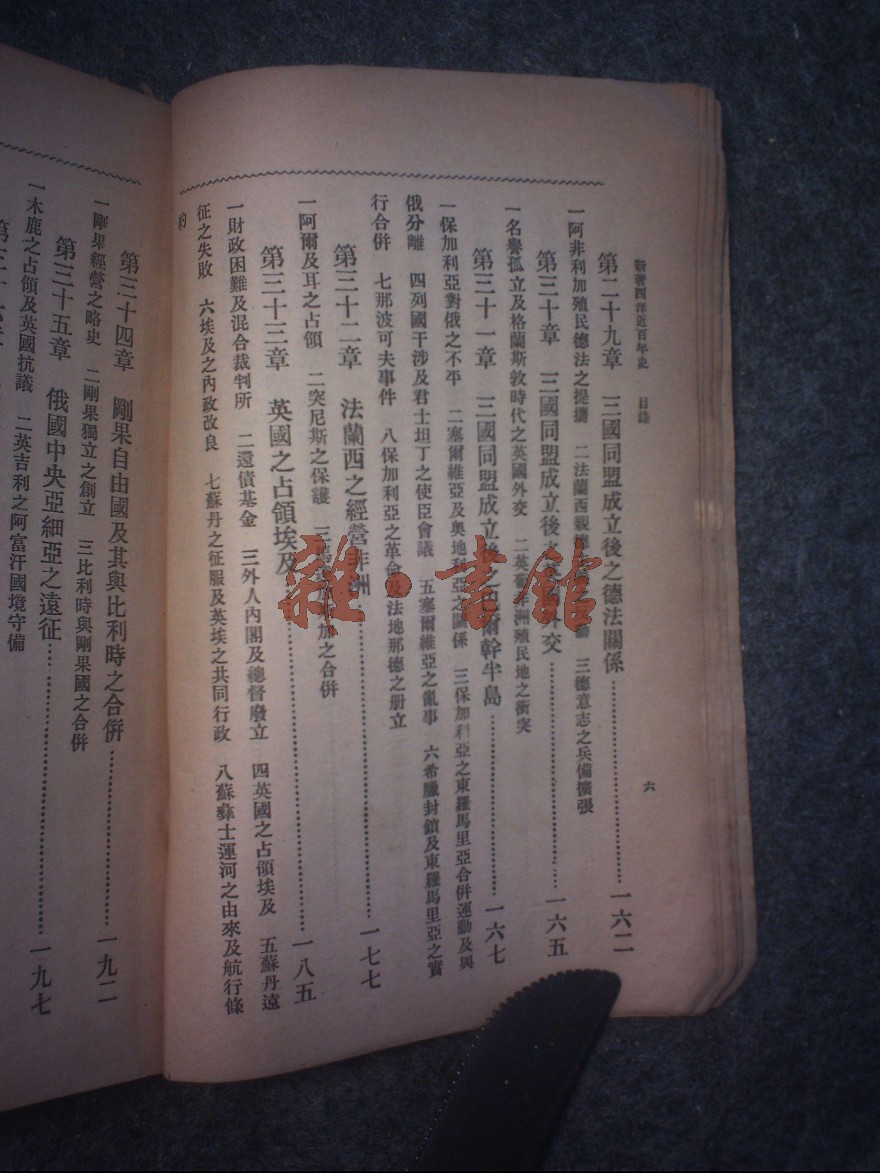 新著西洋近百年史 目錄 六
第二十九章 三國同盟成立後之德法關係 一六二
一阿非利加殖民德法之提攜 二法蘭西親 三德意志之兵備擴張
第三十章 三國同盟成立後之英國外交 一六五
一名譽孤立及格蘭斯敦時代之英國外交 二英葡非洲殖民地之衝突
第三十一章 三國同盟成立後之巴爾幹半島 一六七
一保加利亞對俄之不平 二塞爾維亞及奧地利亞之關係 三保加利亞之東羅馬里亞合併運動及與
俄分離 四列國干涉及君士坦丁之使臣會議 五塞爾維亞之亂事 六希臘封鎖及東羅馬里亞之實
行合併 七那波可夫事件 八保加利亞之革命及法地那德之册立
第三十二章 法蘭西之經營非洲 一七七
一阿爾及耳之占領 二突尼斯之保護 三馬 加之合併
第三十三章 英國之占領埃及 一八五
一財政困難及混合裁判所 二還債基金 三外人內閣及總督廢立 四英國之占領埃及 五蘇丹遠
征之失敗 六埃及之內政改良 七蘇丹之征服及英埃之共同行政 八蘇彝士運河之由來及航行條
約
第三十四章 剛果自由國及其與比利時之合併 一九二
一剛果經營之略史 二剛果獨立之創立 三比利時與剛果國之合併
第三十五章 俄國中央亞細亞之遠征 一九七
一木鹿之占領及英國抗議 二英吉利之阿富汗國境守備
雜·書館